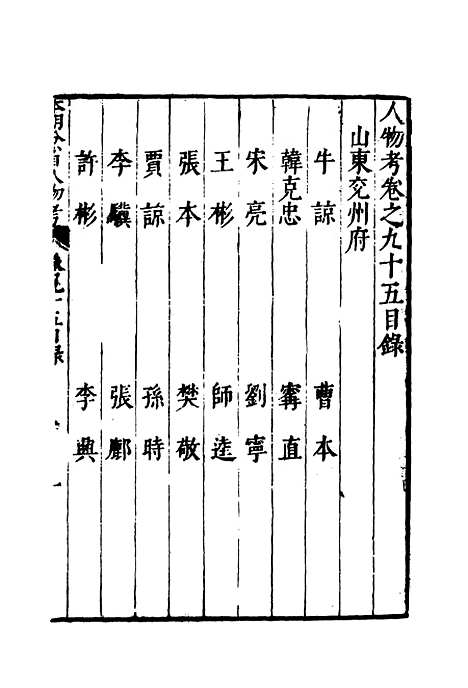 人物考卷之九十五目錄
山東兗州府
牛諒 曹本
韓克忠 甯直
宋亮 劉寧
王彬 師逵
張本 樊敬
賈諒 孫時
李驥 張鄺
許彬 李典
本朝分省人物考 卷之九十五目錄 一